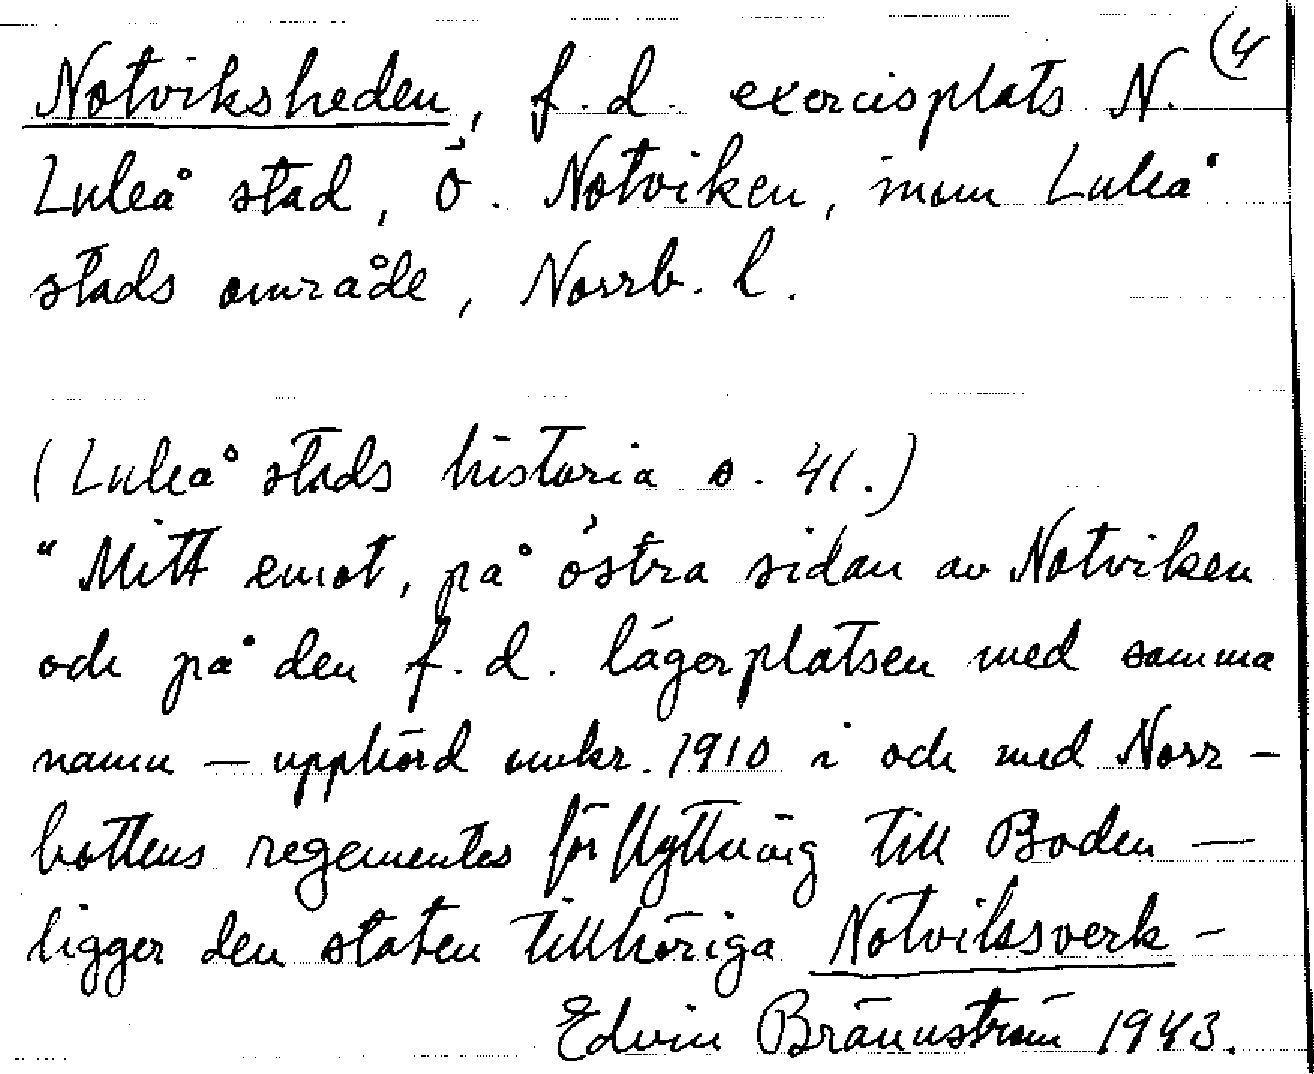 (4
Notviksheden, f.d. exercisplats N.
Luleå stad, Ö. Notviken, inom Luleå
stads område, Norrb. l.
(Luleå stads historia s. 41.)
"Mitt emot, på östra sidan av Notviken
och på den f.d. lägerplatsen med samma
namn — upphörd omkr. 1910 i och med Norr-
bottens regementes förflyttning till Boden —
ligger den staten tillhöriga Notviksverk-
Edvin Brännström 1943.